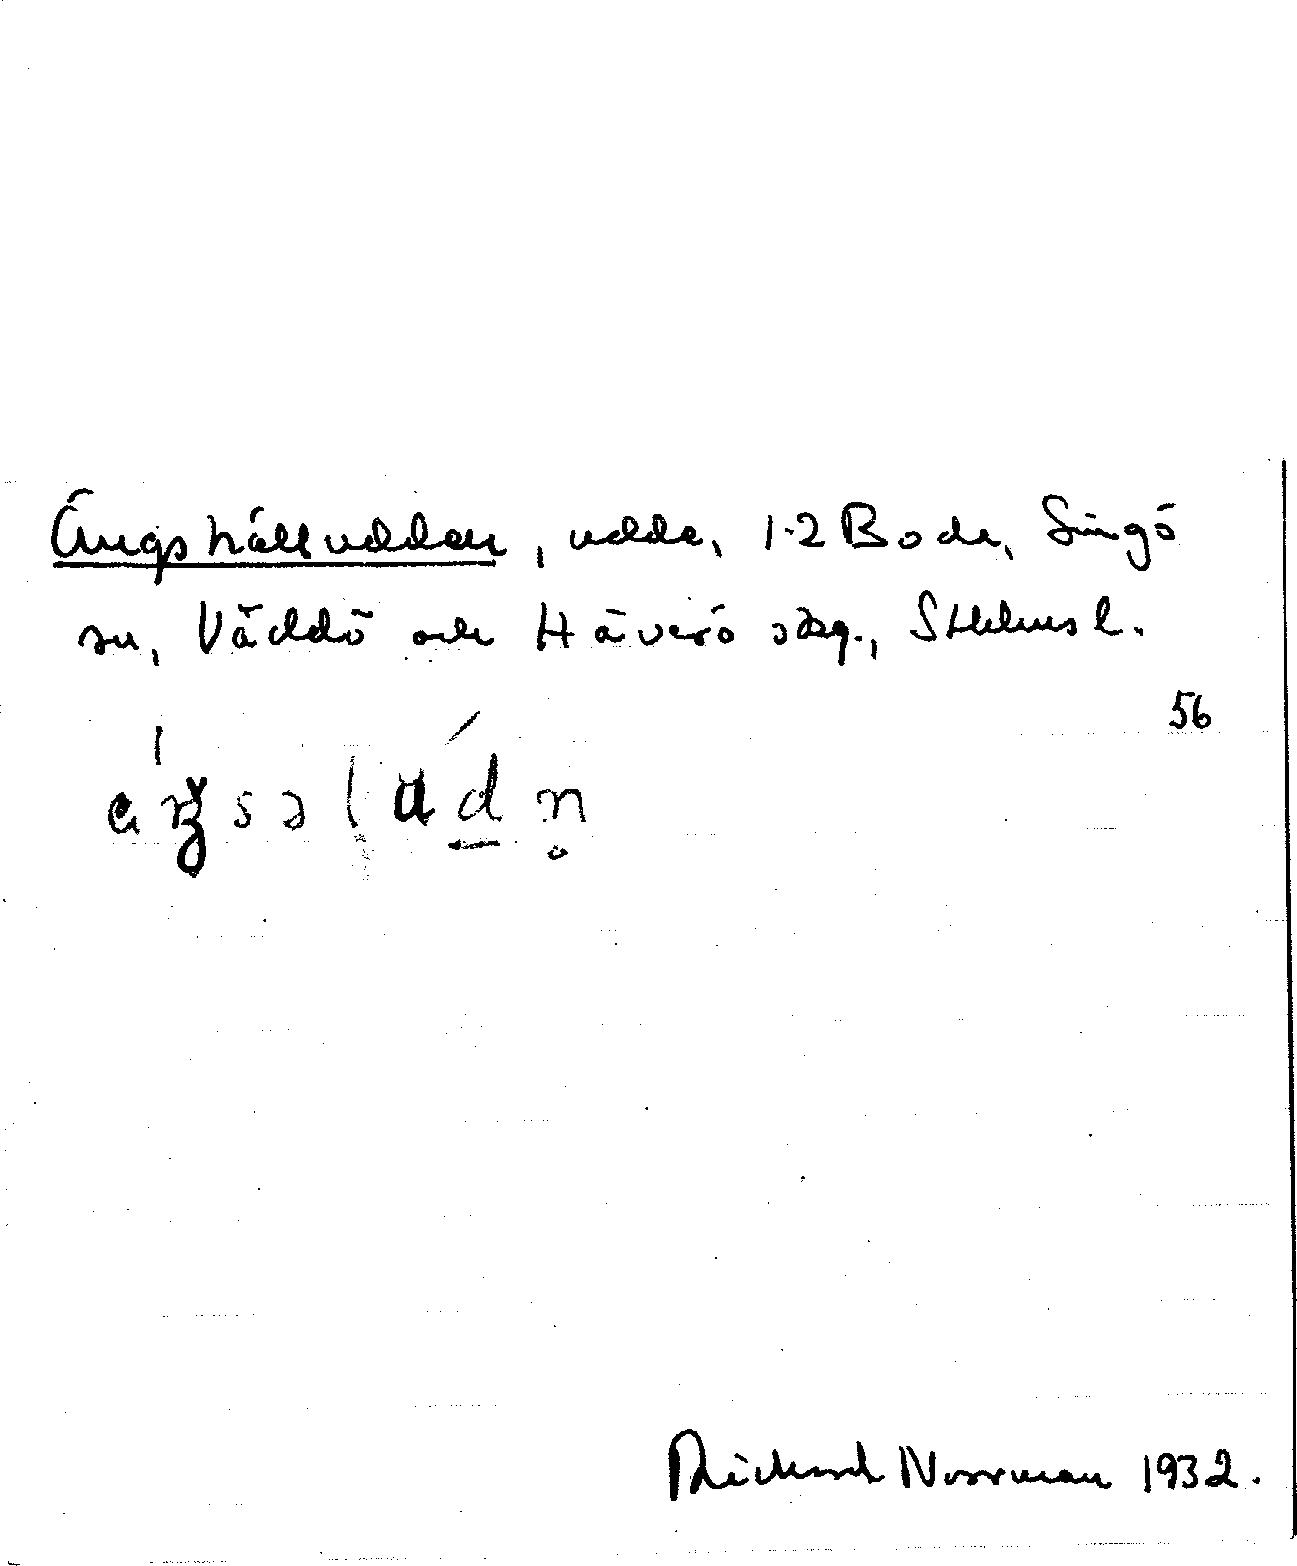 Ängshälluddan, udde, 1-2 Boda, Singö
sn, Väddö och Häverö skg., Sthlms l.
56
Rickard Norrman 1932.